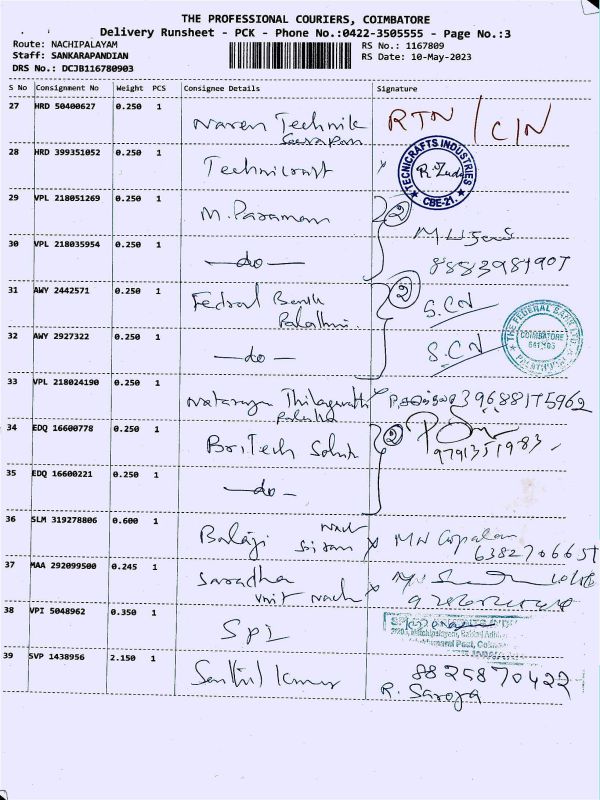 THE PROFESSIONAL COURIERS, COIMBATORE
Delivery Runsheet - PCK - Phone No.:0422-3505555 - Page No.:3
Route: NACHIPALAYAM RS No.: 1167809
Staff: SANKARAPANDIAN RS Date: 10-May-2023
DRS No.: DCJB116780903
S No Consignment No Weight PCS Consignee Details Signature
27 HRD 50400627 0.250 1 Naren Technik RTN / CIN
28 HRD 399351052 0.250 1 Technicraft
TECNICRAFTS INDUSTRIES
CBE-21.
29 VPL 218051269 0.250 1 M. Paramam 2
30 VPL 218035954 0.250 1 -do- 8883981907
31 AWY 2442571 0.250 1 Fedral Bank 2 S.CN
THE FEDERAL BANK LTD
COIMBATORE
32 AWY 2927322 0.250 1 -do- S.CN
33 VPL 218024190 0.250 1 Nataraja Thilagavathi 9688175962
34 EDQ 16600778 0.250 1 BriTech Soluti 2
9791351983
35 EDQ 16600221 0.250 1 -do-
36 SLM 319278806 0.600 1 Balaji Sri ram MN Gopalan
37 MAA 292099500 0.245 1 Saradha
38 VPI 5048962 0.350 1 SPI
39 SVP 1438956 2.150 1 Senthil Kumar 8825870422
R. Saroja